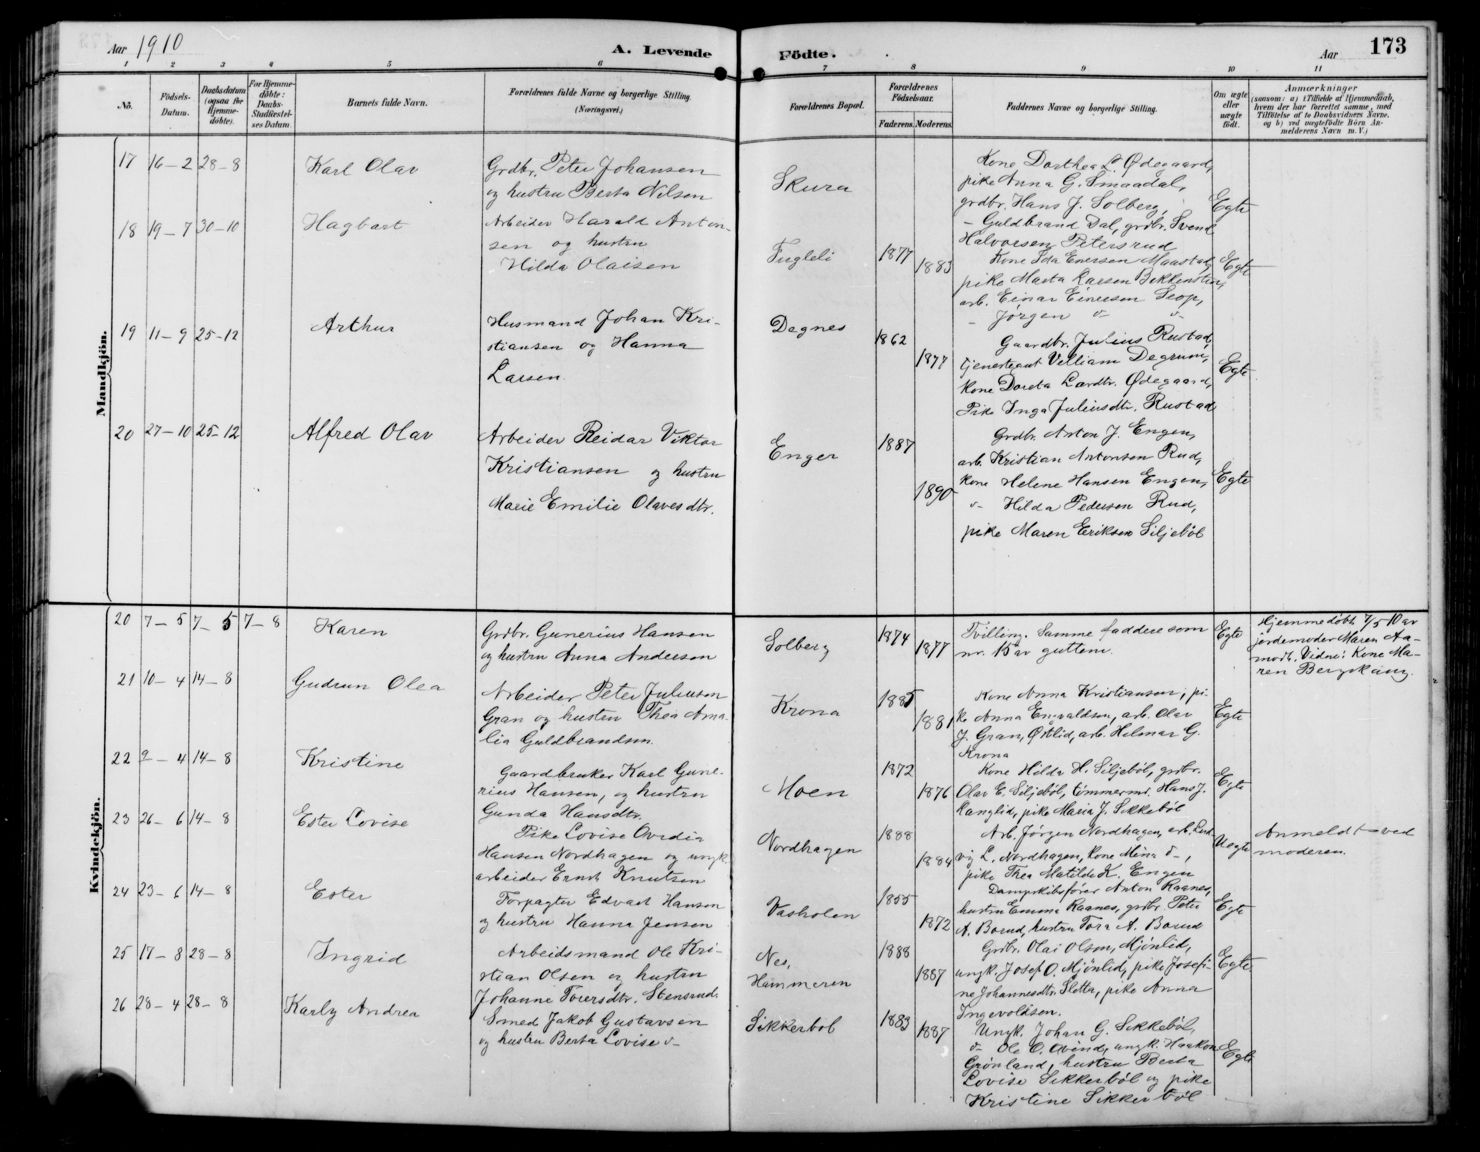 Aar 1910
A. Levende Födte.
Aar 173
1 2 3 4 5 6 7 8 9 10 11
No.
Födsels-Datum.
Daabsdatum (ogsaa för Hjemmedöbte).
For Hjemmedöbte: Daabs-Stadfæstelses Datum.
Barnets fulde Navn.
Forældrenes fulde Navne og borgerlige Stilling. (Næringsvei.)
Forældrenes Bopæl.
Forældrenes Födselsaar.
Faderens. Moderens.
Faddernes Navne og borgerlig Stilling.
Om ægte eller uægte født.
Anmærkninger
(saasom: a) i Tilfælde af Hjemmedaab, hvem der har forrettet samme, med Tilföielse af to Daabsvidners Navne, og b) ved uægtefødte Börn Anmelderens Navn m. V.)
Mandkjön.
17 16-2 28-8 Karl Olav
Grdbr. Peter Johansen
og hustru Berta Nilsen
Skura
Kone Dorthea L. Ødegaard,
pike Anna G. Smaadal,
grdbr. Hans J. Solberg,
- Guldbrand Dal, grdbr. Svend
Halvorsen Petersrud
Egte
18 19-7 30-10 Hagbart
Arbeider Harald Anton-
sen og hustru
Hilda Olaisen
Fugleli
1877 1883
Kone Ida Enersen Maastad,
pike Marta Larsen
arb. Einar Einersen Seop,
- Jörgen " "
Egte
19 11-9 25-12 Arthur
Husmand Johan Kri-
stiansen og Hanna
Larsen.
Degnes
1862 1877
Gaardbr. Julius Rustad,
tjenestegut Villiam
Kone Doreta Lardtr. Ødegaard,
Pike Inga Juliusdtr. Rustad
Egte
20 27-10 25-12 Alfred Olav
Arbeider Reidar Viktor
Kristiansen og hustru
Marie Emilie Olavesdtr.
Enger
1887 1890
Grdbr. Anton J. Engen,
arb. Kristian Antonsen Rud,
Kone Helene Hansen Engen,
" Hilda Pedersen Rud,
pike Maren Eriksen Siljeböl
Egte
Kvindekjön.
20 7-5 7-5 7-8 Karen
Grdbr. Gunerius Hansen
og hustru Anna Andersen
Solberg
1874 1877
Tvilling. Samme faddere som
nr. 15 av guttem.
Egte
Hjemmedöbt 7/5 10 av
jordemoder Maren Aa-
modt. Vidne: Kone Ma-
ren
21 10-4 14-8 Gudrun Olea
Arbeider Peter Juliusson
Gran og hustru Thea Ama-
lia Guldbrandsen.
Krona
1885 1881
Kone Anna Kristiansen, pi-
ke Anna Engvaldsen, arb. Olav
J. Gran, Østlid, arb. Hilmar G.
Krona
Egte
22 2-4 14-8 Kristine
Gaardbruker Karl Gune-
rius Hansen, og hustru
Gunda Hansdtr.
Moen
1872 1876
Kone Hilda H. Siljeböl, grdbr.
Olav E. Siljeböl, tömmerm. Hans J.
Kanglid, pike Maria J. Sikkeböl
Egte
23 26-6 14-8 Ester Lovise
Pike Lovise Ovidia
Hansen Nordhagen og ungk.
arbeider Ernst Knutsen
Nordhagen
1888 1884
Arb. Jörgen Nordhagen, arb. Lud-
vig L. Nordhagen, Kone Mina " ,
pike Thea Matilde K. Engen
Uegte
Anmeldt ved
moderen.
24 23-6 14-8 Ester
Forpagter Edvart Hansen
og hustru Hanna Jensen
Vasholen
1855 1872
Dampskibsförer Anton Raanes,
hustru Emma Raanes, grdbr. Peter
A. Borud, hustru Tora A. Borud
Egte
25 17-8 28-8 Ingrid
Arbeidsmand Ole Kri-
stian Olsen og hustru
Johanne Toersdtr. Stensrud.
Nes,
Hammeren
1888 1887
Grdbr. Olai Olsen, Mjönlid,
ungk. Josef O. Mjönlid, pike Josefi-
ne Johannesdtr. Sletta, pike Anna
Ingevoldsen.
Egte
26 28-4 28-8 Karly Andrea
Smed Jakob Gustavsen
og hustru Berta Lovise "
Sikkerböl
1883 1887
Ungk. Johan G. Sikkeböl,
" Ole O. Ovind, ungk. Haakon
Grönland, hustru Berta
Lovise Sikkerböl og pike
Kristine Sikkerböl
Egte